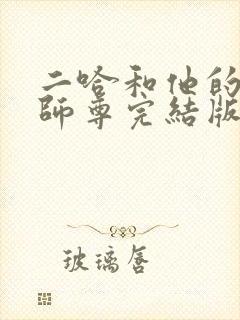 二哈和他的
師尊完結版
玻璃唇